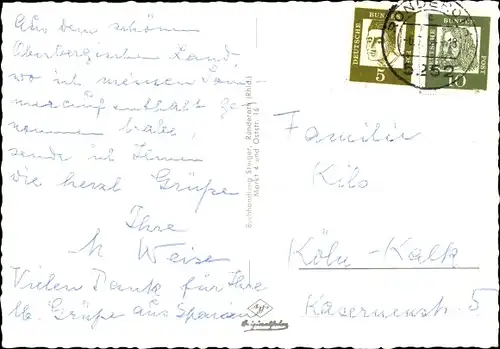 Aus dem schönen
Oberbergischen Land,
wo ich meinen Som-
meraufenthalt ge-
nommen habe,
sende ich Ihnen
die herzl. Grüße
Ihre
M Weise
Vielen Dank für Ihre
lb. Grüße aus Spanien
Buchhandlung Stinger, Ründeroth (Rhld.)
Markt 4 und Oststr. 16
Agfa
Originalfoto
DEUTSCHE
BUNDESPOST
5
DEUTSCHE
BUNDESPOST
10
RÜNDEROTH
Familie
Kilo
Köln-Kalk
Kasernenstr. 5